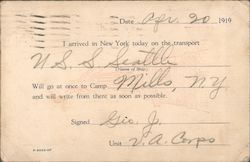 Date Apr. 20 1919
I arrived in New York today on the transport
U.S.S Seattle
(Name of Ship)
Will go at once to Camp Mills, NY
and will write from there as soon as possible.
Signed Geo. J.
Unit V.A. Corps